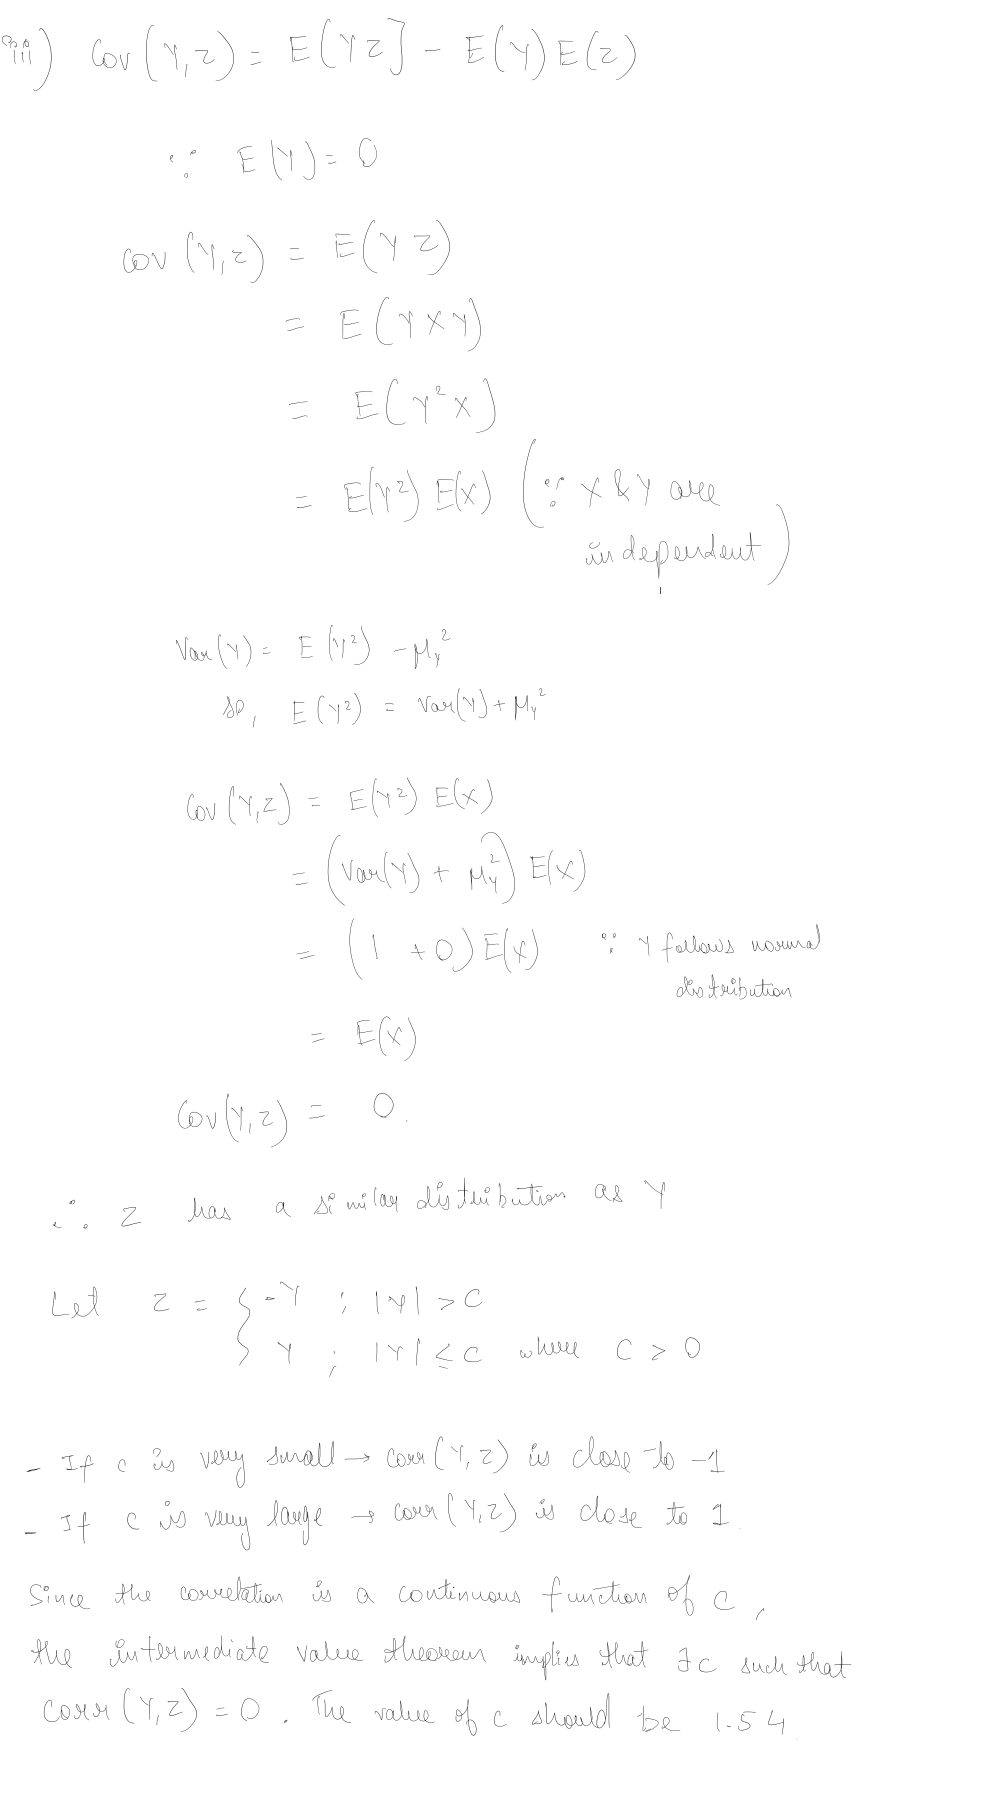 iii) Cov(Y,Z) = E(YZ] - E(Y)E(Z)
∵ E(Y) = 0
Cov(Y,Z) = E(YZ)
= E(YXY)
= E(Y²X)
= E(Y²) E(X) (∵ X & Y are
independent)
Var(Y) = E(Y²) - μ_Y²
so, E(Y²) = Var(Y) + μ_Y²
Cov(Y,Z) = E(Y²) E(X)
= (Var(Y) + μ_Y²) E(X)
= (1 + 0) E(X) ∵ Y follows normal
distribution
= E(X)
Cov(Y,Z) = 0.
∴ Z has a similar distribution as Y
Let Z = { -Y ; |Y| > C
Y ; |Y| ≤ C where C > 0
- If c is very small → corr(Y,Z) is close to -1
- If c is very large → corr(Y,Z) is close to 1.
Since the correlation is a continuous function of c,
the intermediate value theorem implies that ∃c such that
corr(Y,Z) = 0. The value of c should be 1.54.